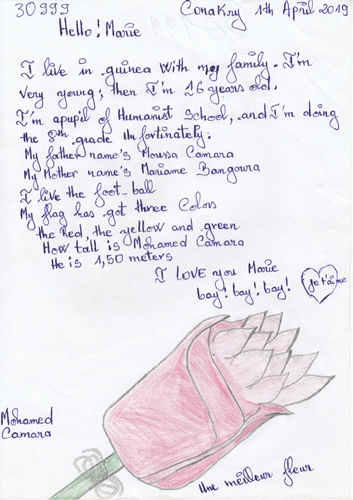 30999
Conakry 1th April 2019
Hello! Marie
I live in guinea with my family. I'm
very young; then I'm 16 years old.
I'm apupil of Humanist School, and I'm doing
the 8th grade Unfortinately.
My father name's Moussa Camara
My Mother name's Mariame Bangoura
I like the foot-ball
My flag has got three Colors
the Red, the yellow and green
How tall is Mohamed Camara
He is 1,50 meters
I LOVE you Marie
bay! bay! bay!
Je t'aime
Mohamed
Camara
Une meilleur fleur